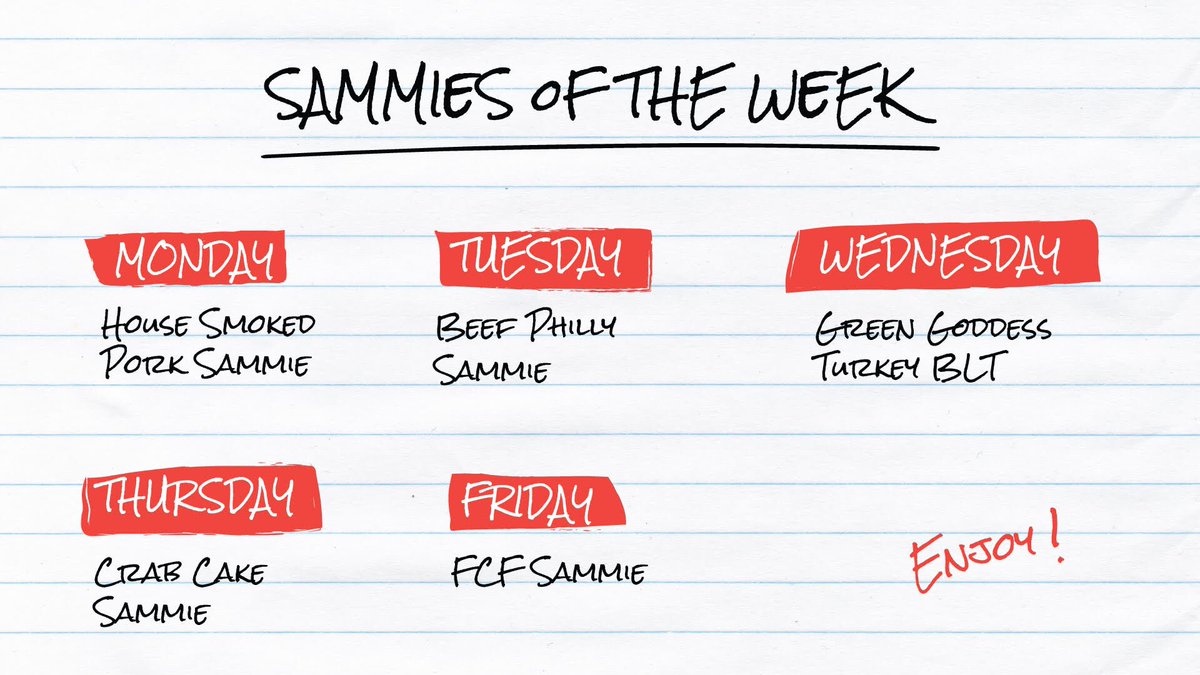 Sammies of the Week
Monday
House Smoked
Pork Sammie
Tuesday
Beef Philly
Sammie
Wednesday
Green Goddess
Turkey BLT
Thursday
Crab Cake
Sammie
Friday
FCF Sammie
Enjoy!